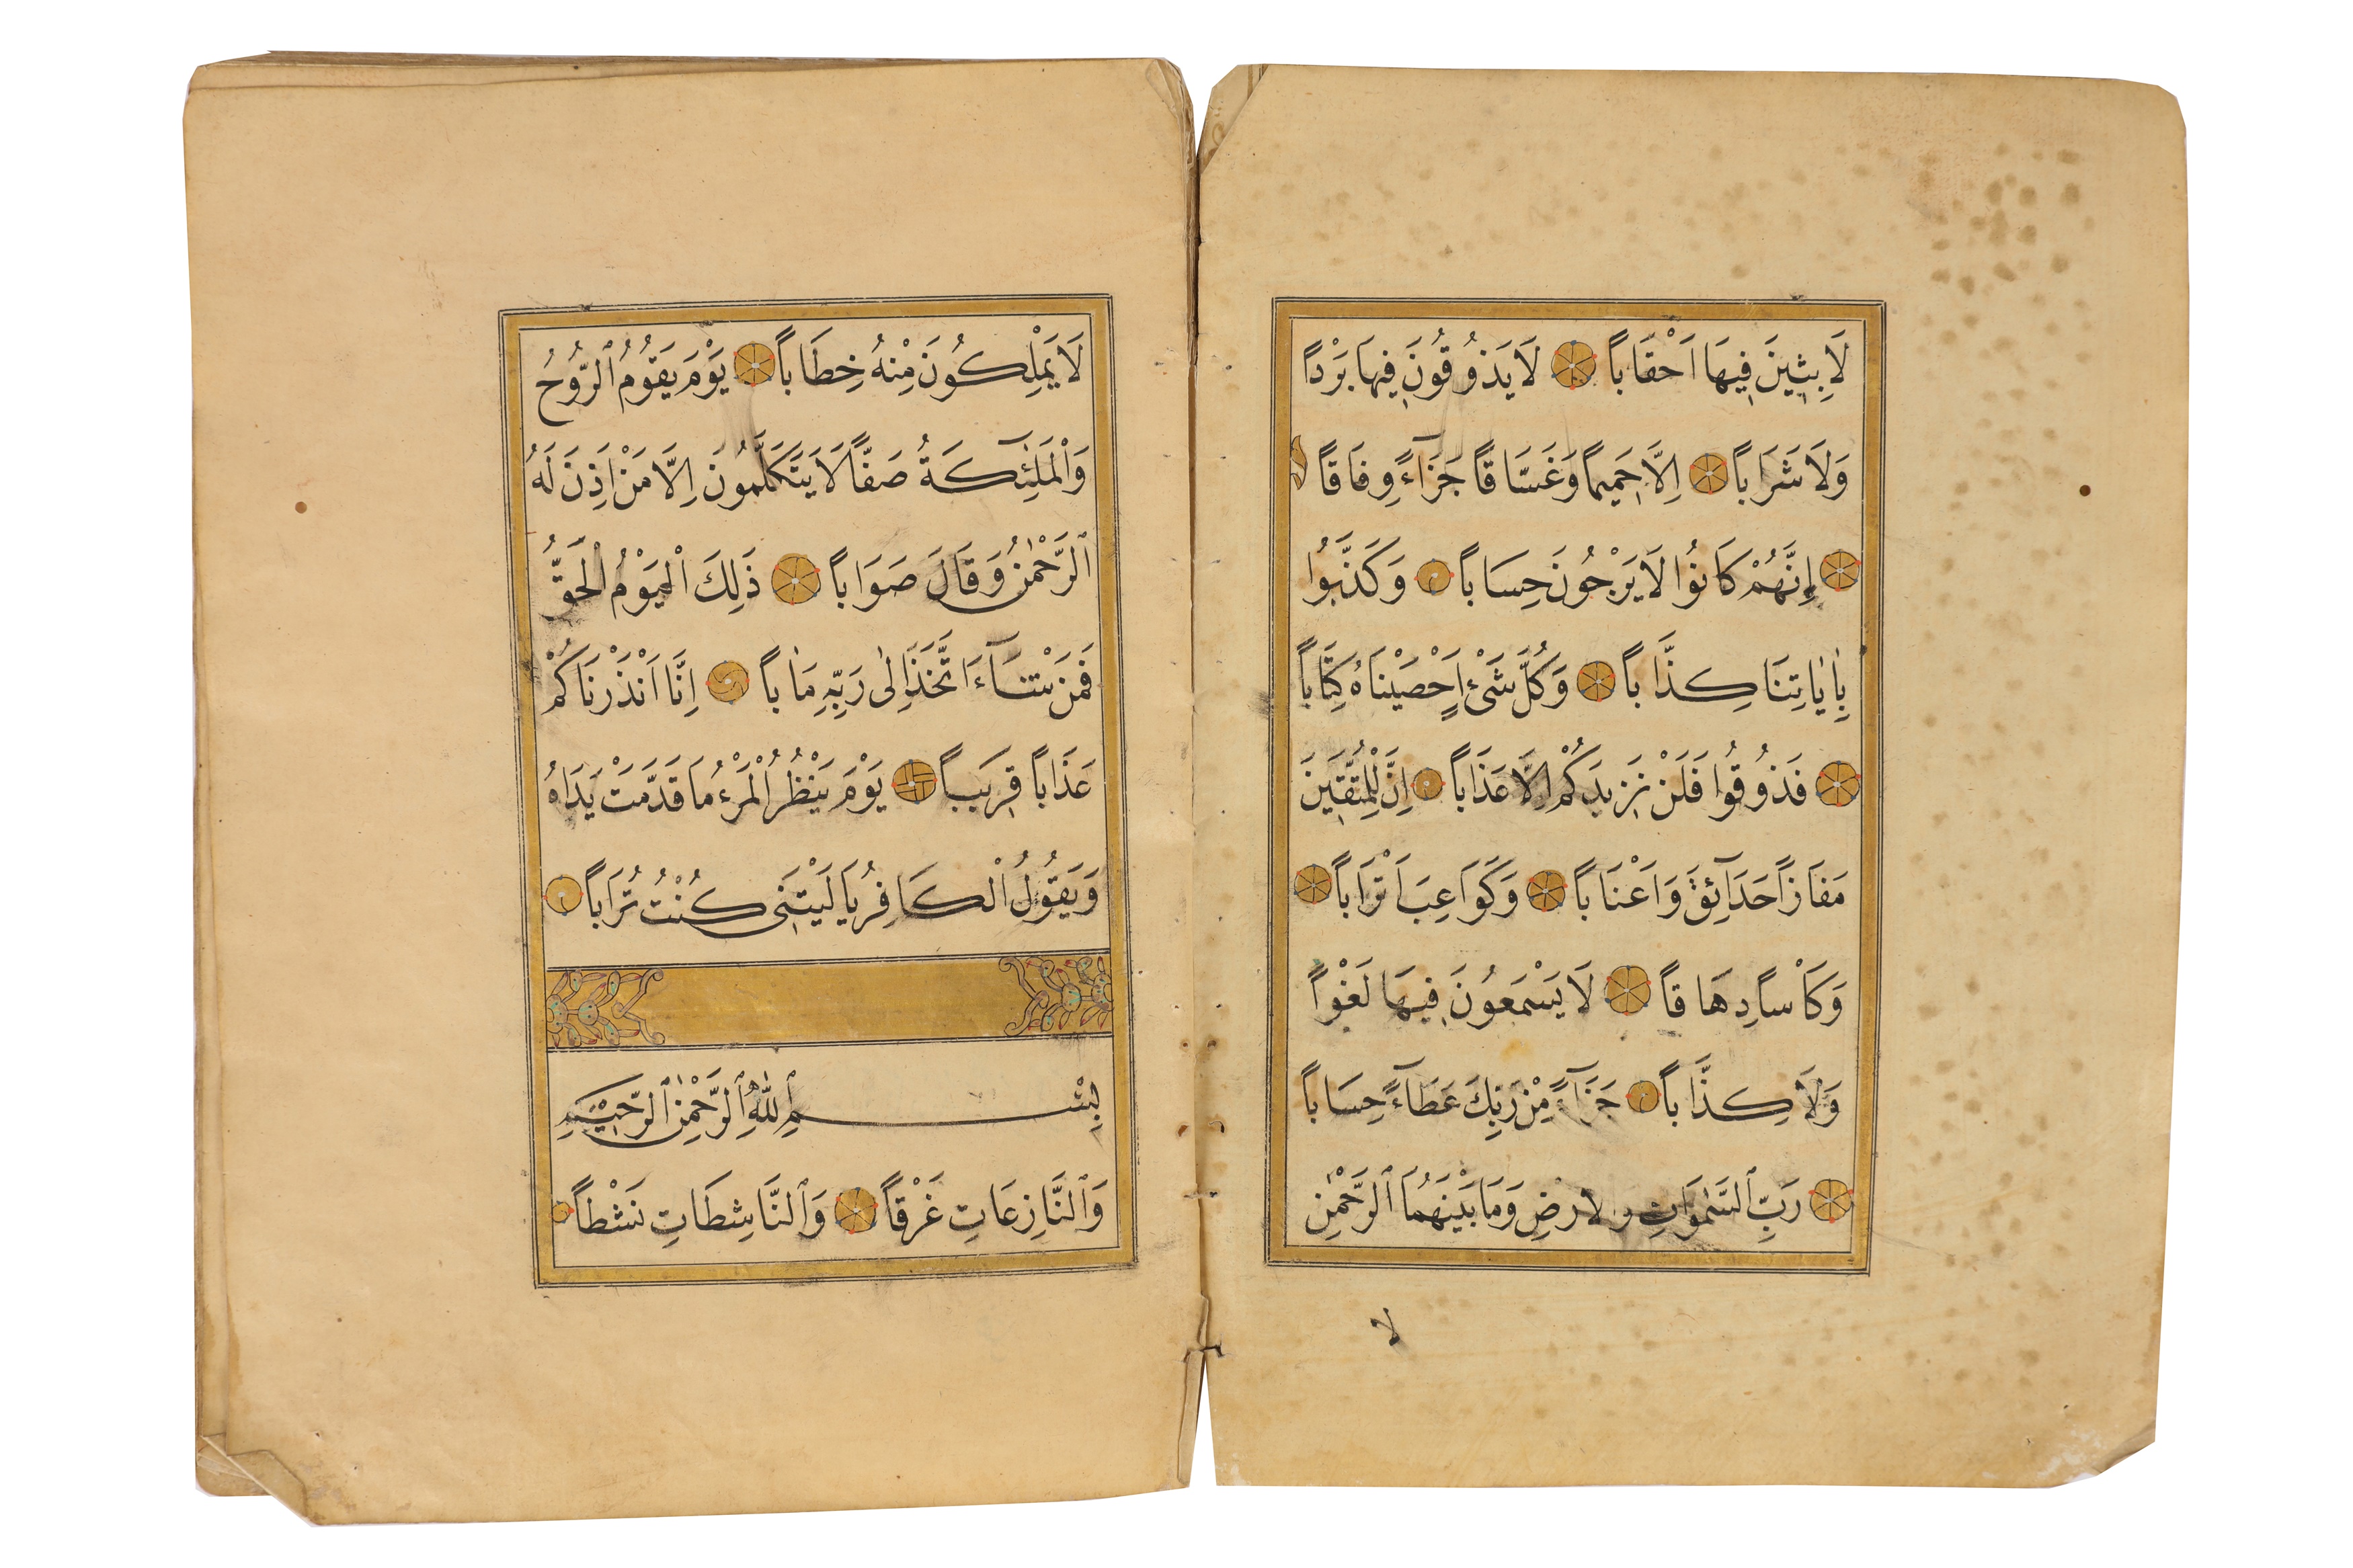 لَابِثِينَ فِيهَا اَحْقَاباً لَا يَذُوقُونَ فِيهَا بَرْداً
وَلَا شَرَاباً اِلَّا حَمِيماً وَغَسَّاقاً جَزَآءً وِفَاقاً
اِنَّهُمْ كَانُوا لَا يَرْجُونَ حِسَاباً وَكَذَّبُوا
بِاٰيَاتِنَا كِذَّاباً وَكُلَّ شَىْءٍ اَحْصَيْنَاهُ كِتَاباً
فَذُوقُوا فَلَنْ نَزِيدَكُمْ اِلَّا عَذَاباً اِنَّ لِلْمُتَّقِينَ
مَفَازاً حَدَآئِقَ وَاَعْنَاباً وَكَوَاعِبَ اَتْرَاباً
وَكَاْساً دِهَاقاً لَا يَسْمَعُونَ فِيهَا لَغْواً
وَلَا كِذَّاباً جَزَآءً مِنْ رَبِّكَ عَطَآءً حِسَاباً
رَبِّ ٱلسَّمٰوَاتِ والارضِ وَمَا بَيْنَهُمَا ٱلرَّحْمٰنِ
لا
لَا يَمْلِكُونَ مِنْهُ خِطَاباً يَوْمَ يَقُومُ ٱلرُّوحُ
وَالْمَلٰٓئِكَةُ صَفّاً لَا يَتَكَلَّمُونَ اِلَّا مَنْ اَذِنَ لَهُ
ٱلرَّحْمٰنُ وَقَالَ صَوَاباً ذَلِكَ الْيَوْمُ الْحَقُّ
فَمَنْ شَآءَ اتَّخَذَ اِلٰى رَبِّهِ مَاٰباً اِنَّا اَنْذَرْنَاكُمْ
عَذَاباً قَرِيباً يَوْمَ يَنْظُرُ الْمَرْءُ مَا قَدَّمَتْ يَدَاهُ
وَيَقُولُ الْكَافِرُ يَا لَيْتَنِى كُنْتُ تُرَاباً
بِسْمِ ٱللّٰهِ ٱلرَّحْمٰنِ ٱلرَّحِيمِ
وَٱلنَّازِعَاتِ غَرْقاً وَٱلنَّاشِطَاتِ نَشْطاً